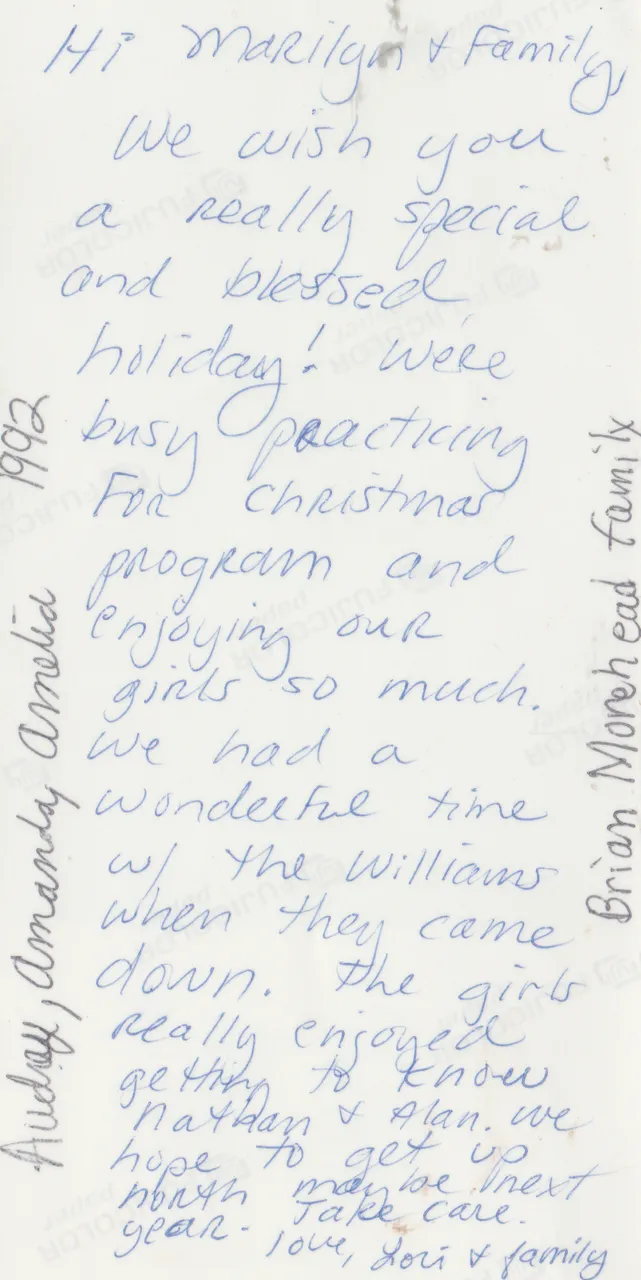 Hi Marilyn & Family,
We wish you
a really special
and blessed
holiday! We're
busy practicing
For Christmas
program and
enjoying our
girls so much.
We had a
wonderful time
w/ the Williams
when they came
down. The girls
really enjoyed
getting to know
Nathan & Alan. We
hope to get up
north maybe next
year. Take care.
love, Lori & family
Audrey, Amanda, Amelia 1992
Brian Morehead family
FUJICOLOR
FUJICOLOR
FUJICOLOR
FUJICOLOR